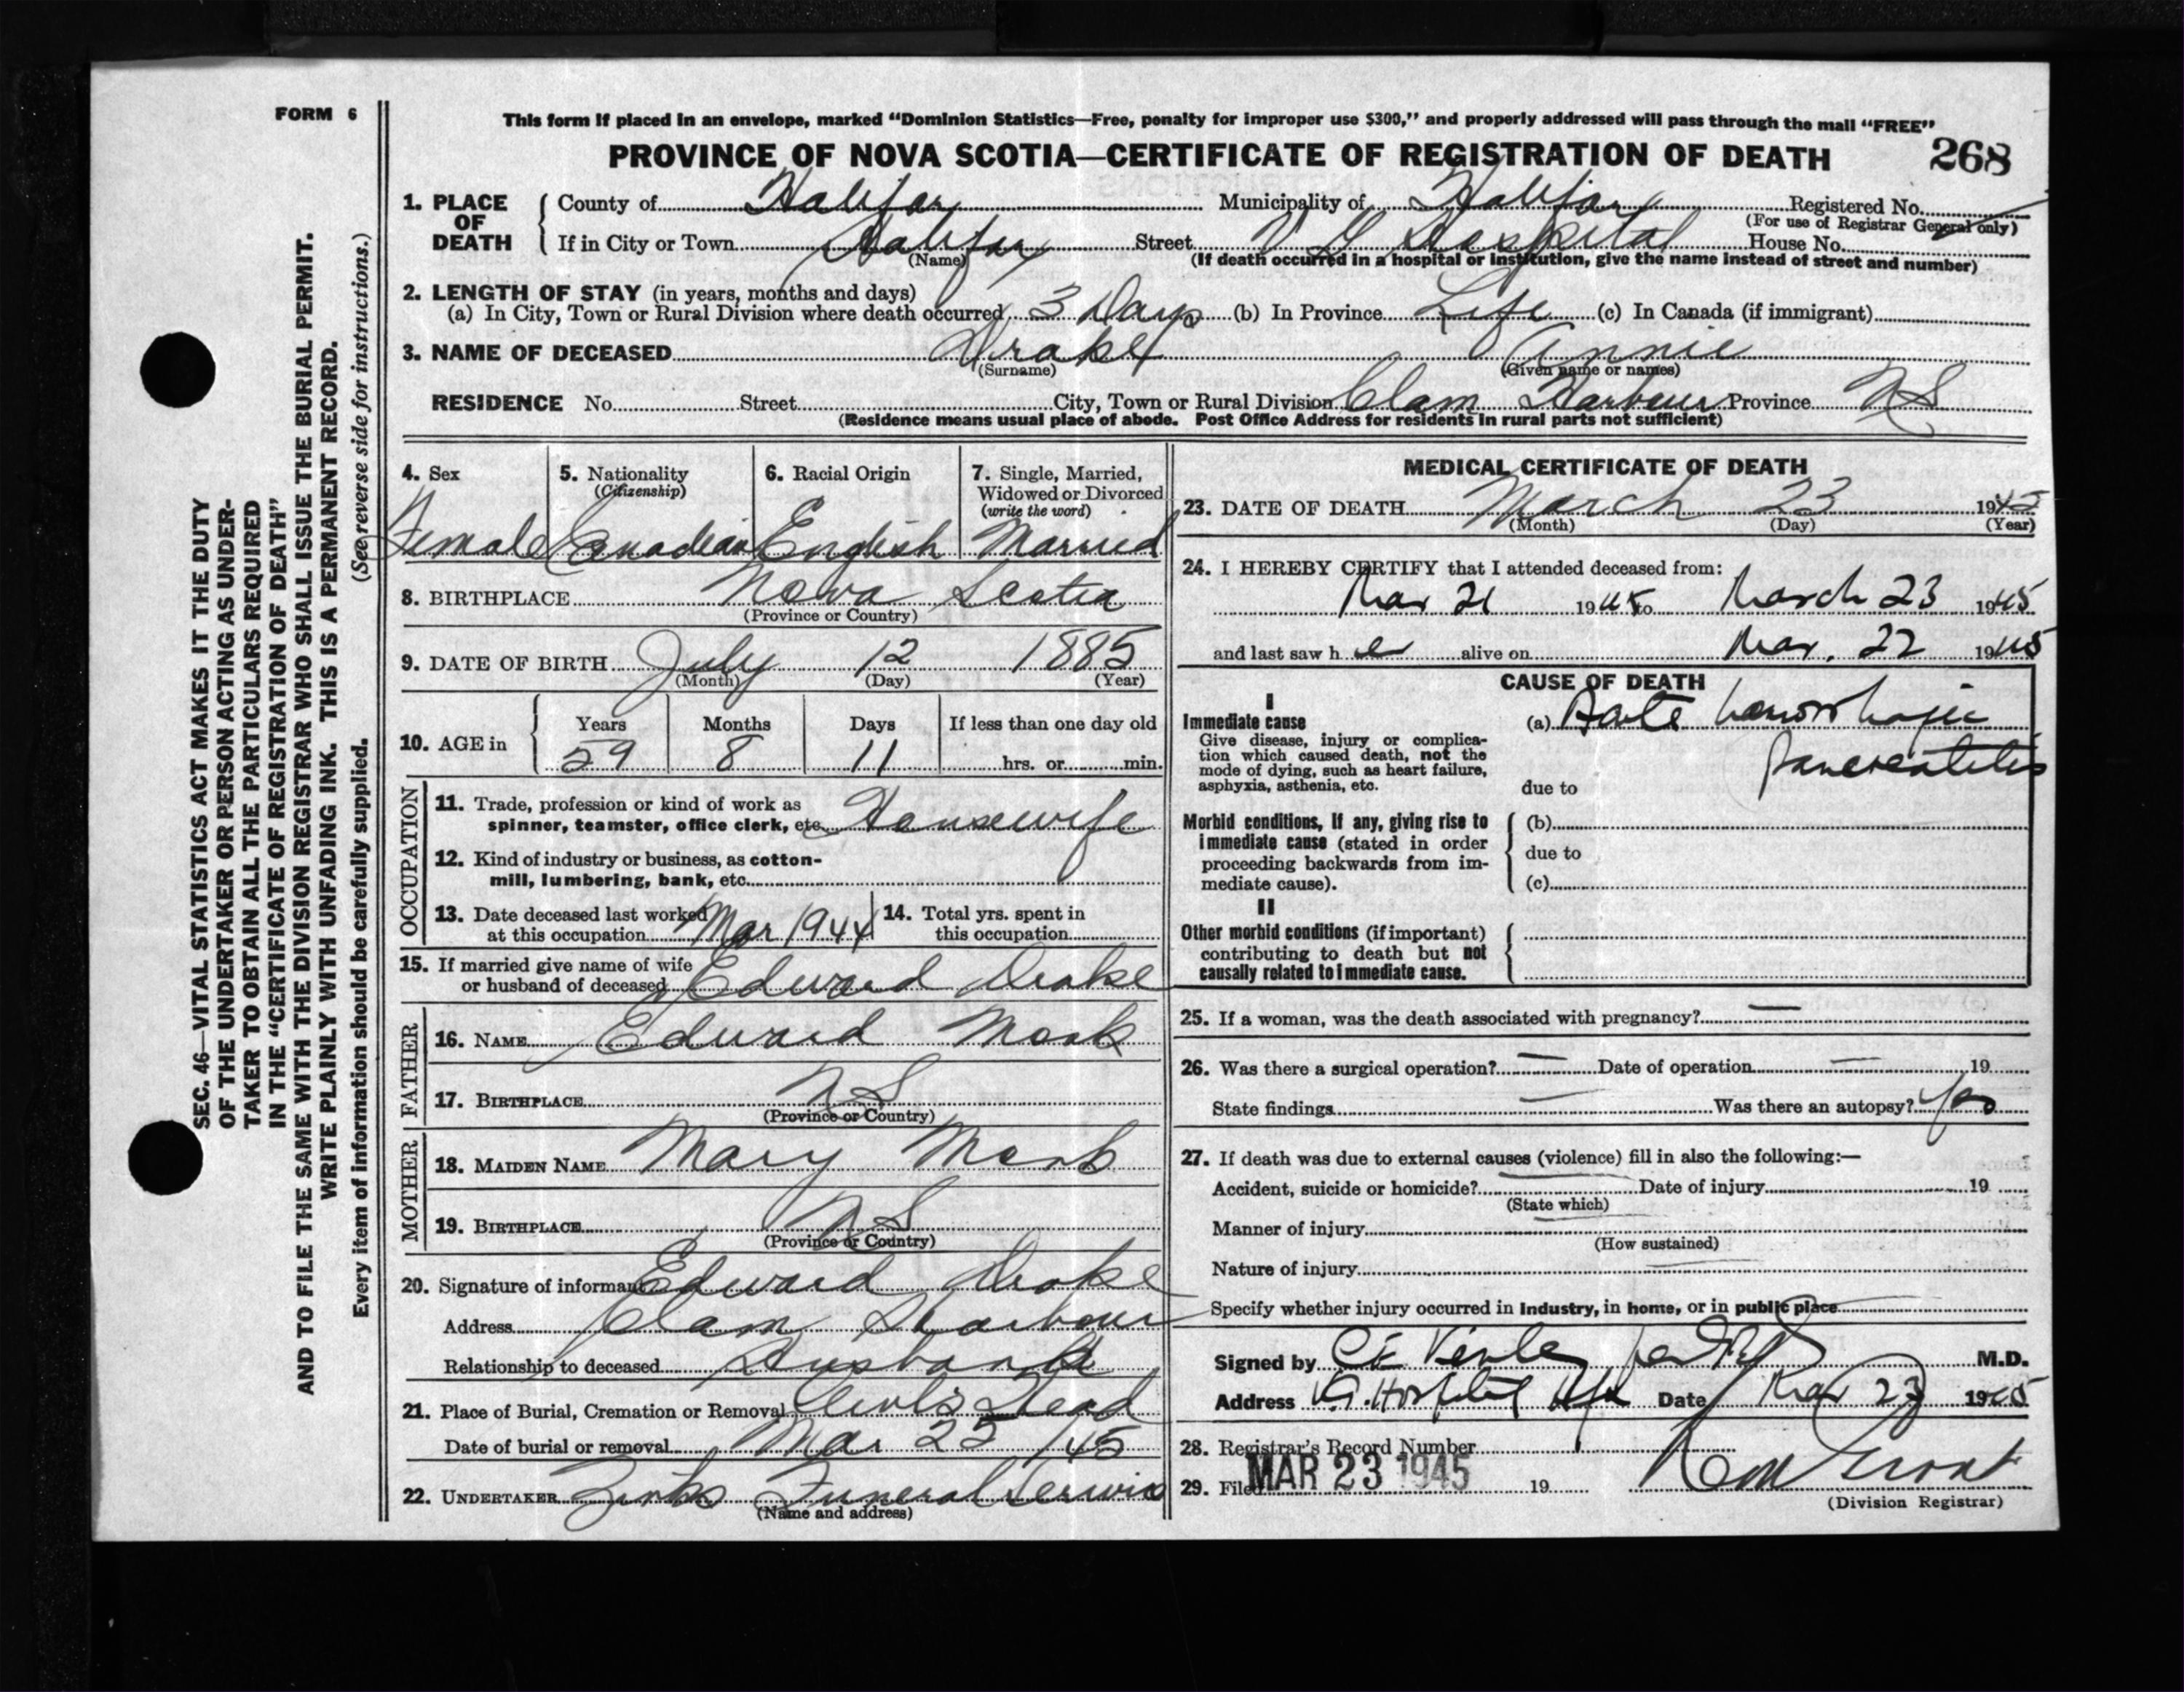 FORM 6
This form if placed in an envelope, marked "Dominion Statistics—Free, penalty for improper use $300," and properly addressed will pass through the mail "FREE"
PROVINCE OF NOVA SCOTIA—CERTIFICATE OF REGISTRATION OF DEATH 268
1. PLACE OF DEATH
County of Halifax Municipality of Halifax Registered No.
(For use of Registrar General only)
If in City or Town Halifax Street V G Hospital House No.
(Name) (If death occurred in a hospital or institution, give the name instead of street and number)
2. LENGTH OF STAY (in years, months and days)
(a) In City, Town or Rural Division where death occurred 3 Days (b) In Province Life (c) In Canada (if immigrant)
3. NAME OF DECEASED Drake Annie
(Surname) (Given name or names)
RESIDENCE No. Street City, Town or Rural Division Clam Harbour Province NS
(Residence means usual place of abode. Post Office Address for residents in rural parts not sufficient)
4. Sex
Female
5. Nationality
(Citizenship)
Canadian
6. Racial Origin
English
7. Single, Married,
Widowed or Divorced
(write the word)
Married
8. BIRTHPLACE Nova Scotia
(Province or Country)
9. DATE OF BIRTH July 12 1885
(Month) (Day) (Year)
10. AGE in
Years Months Days If less than one day old
59 8 11 hrs. or min.
OCCUPATION
11. Trade, profession or kind of work as
spinner, teamster, office clerk, etc. Housewife
12. Kind of industry or business, as cotton-
mill, lumbering, bank, etc.
13. Date deceased last worked
at this occupation Mar 1944
14. Total yrs. spent in
this occupation
15. If married give name of wife
or husband of deceased Edward Drake
FATHER
16. NAME Edward Monk
17. BIRTHPLACE NS
(Province or Country)
MOTHER
18. MAIDEN NAME Mary Monk
19. BIRTHPLACE NS
(Province or Country)
20. Signature of informant Edward Drake
Address Clam Harbour
Relationship to deceased Husband
21. Place of Burial, Cremation or Removal Head
Date of burial or removal Mar 25 /45
22. UNDERTAKER Zinks Funeral Service
(Name and address)
MEDICAL CERTIFICATE OF DEATH
23. DATE OF DEATH March 23 1945
(Month) (Day) (Year)
24. I HEREBY CERTIFY that I attended deceased from:
Mar 21 1945 to March 23 1945
and last saw h er alive on Mar. 22 1945
CAUSE OF DEATH
I
Immediate cause
Give disease, injury or complica-
tion which caused death, not the
mode of dying, such as heart failure,
asphyxia, asthenia, etc.
(a) Acute hemorrhagic
pancreatitis
due to
Morbid conditions, if any, giving rise to
immediate cause (stated in order
proceeding backwards from im-
mediate cause).
(b)
due to
(c)
II
Other morbid conditions (if important)
contributing to death but not
causally related to immediate cause.
25. If a woman, was the death associated with pregnancy? —
26. Was there a surgical operation? — Date of operation — 19
State findings — Was there an autopsy? Yes
27. If death was due to external causes (violence) fill in also the following:—
Accident, suicide or homicide? Date of injury 19
(State which)
Manner of injury
(How sustained)
Nature of injury
Specify whether injury occurred in industry, in home, or in public place
Signed by C E per M.D.
Address V.G. Hospital Hfx Date Mar 23 1945
28. Registrar's Record Number
29. Filed MAR 23 1945 19
(Division Registrar)
SEC. 46—VITAL STATISTICS ACT MAKES IT THE DUTY
OF THE UNDERTAKER OR PERSON ACTING AS UNDER-
TAKER TO OBTAIN ALL THE PARTICULARS REQUIRED
IN THE "CERTIFICATE OF REGISTRATION OF DEATH"
AND TO FILE THE SAME WITH THE DIVISION REGISTRAR WHO SHALL ISSUE THE BURIAL PERMIT.
WRITE PLAINLY WITH UNFADING INK. THIS IS A PERMANENT RECORD.
Every item of information should be carefully supplied. (See reverse side for instructions.)